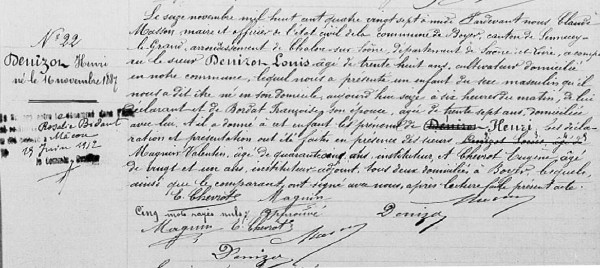 N° 22
Denizon Henri
né le 16 novembre 1887
Rosalie Bodant
à Mâcon
19 Juin 1912
Le seize novembre mil huit cent quatre vingt sept à midi Pardevant nous Claude
Masson, maire et officier de l'état civil de la commune de Boyer, canton de Sennecey
le Grand, arrondissement de Chalon sur Saône, département de Saône et Loire, a comparu
le sieur Denizon Louis âgé de trente huit ans, cultivateur domicilié
en notre commune, lequel nous a présenté un enfant du sexe masculin qu'il
nous a dit être né en son domicile, aujourd'hui seize, à six heures du matin, de lui
déclarant et de Bordat Françoise, son épouse, âgée de trente sept ans, domiciliée
avec lui. Et il a donné à cet enfant les prénoms de Denizon Henri. Ces décla-
ration et présentation ont été faites en présence des sieurs Denizot Louis, âgé de
Magnin Valentin, âgé de quarante cinq ans, instituteur, et Chevrot Eugène, âgé
de vingt et un ans, instituteur adjoint, tous deux domiciliés à Boyer, lesquels,
ainsi que le comparant, ont signé avec nous, après lecture faite du présent acte.
E. Chevrot Magnin
Cinq mots rayés nuls, approuvé Denizon Masson
Magnin E. Chevrot Masson
Denizon